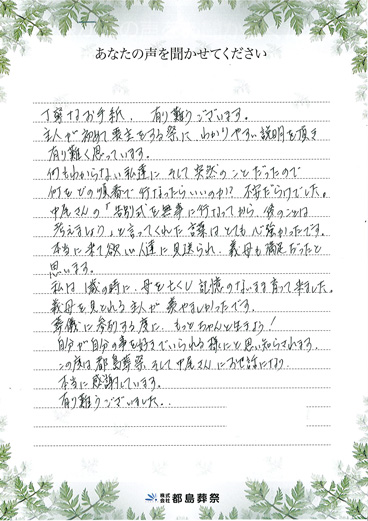 あなたの声を聞かせてください
丁寧なお手紙、有り難うございます。
主人が初めて喪主をする際に、わかりやすい説明を頂き
有り難く思っています。
何もわからない私達に、そして突然のことだったので
何をどの順番で行なったらいいのか!? 不安だらけでした。
中尾さんの「告別式を無事に行なってから、後のことは
考えましょう」と言ってくれた言葉はとても心強かったです。
本当に来て欲しい人達に見送られ、義母も満足だったと
思います。
私は1歳の時に、母を亡くし記憶のないまま育って来ました。
義母を見とれる主人が羨やましかったです。
葬儀に参列する度に、もっとちゃんと生きよう!
自分が自分の事を好きでいられる様にと思い知らされます。
この度は都島葬祭、そして中尾さんにお世話になり、
本当に感謝しています。
有り難うございました。
株式会社 都島葬祭